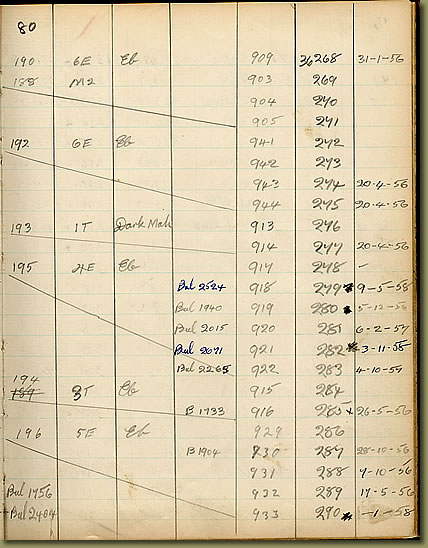 80
190 6E Eb 909 36268 31-1-56
188 M2 903 269
904 270
905 271
192 6E Eb 941 272
942 273
943 274 20-4-56
944 275 20-4-56
193 1T Dark Mah 913 276
914 277 20-4-56
195 4E Eb 917 278 -
Bul 2524 918 279 * 9-5-58
Bul 1940 919 280 * 5-12-56
Bul 2015 920 281 6-2-57
Bul 2071 921 282 * 3-11-58
Bul 2265 922 283 4-10-57
194
189 3T Eb 915 284
B 1733 916 285 * 26-5-56
196 5E Eb 929 286
B 1904 930 287 28-10-56
931 288 7-10-56
Bul 1756 932 289 17-5-56
Bul 2404 933 290 * -1-58